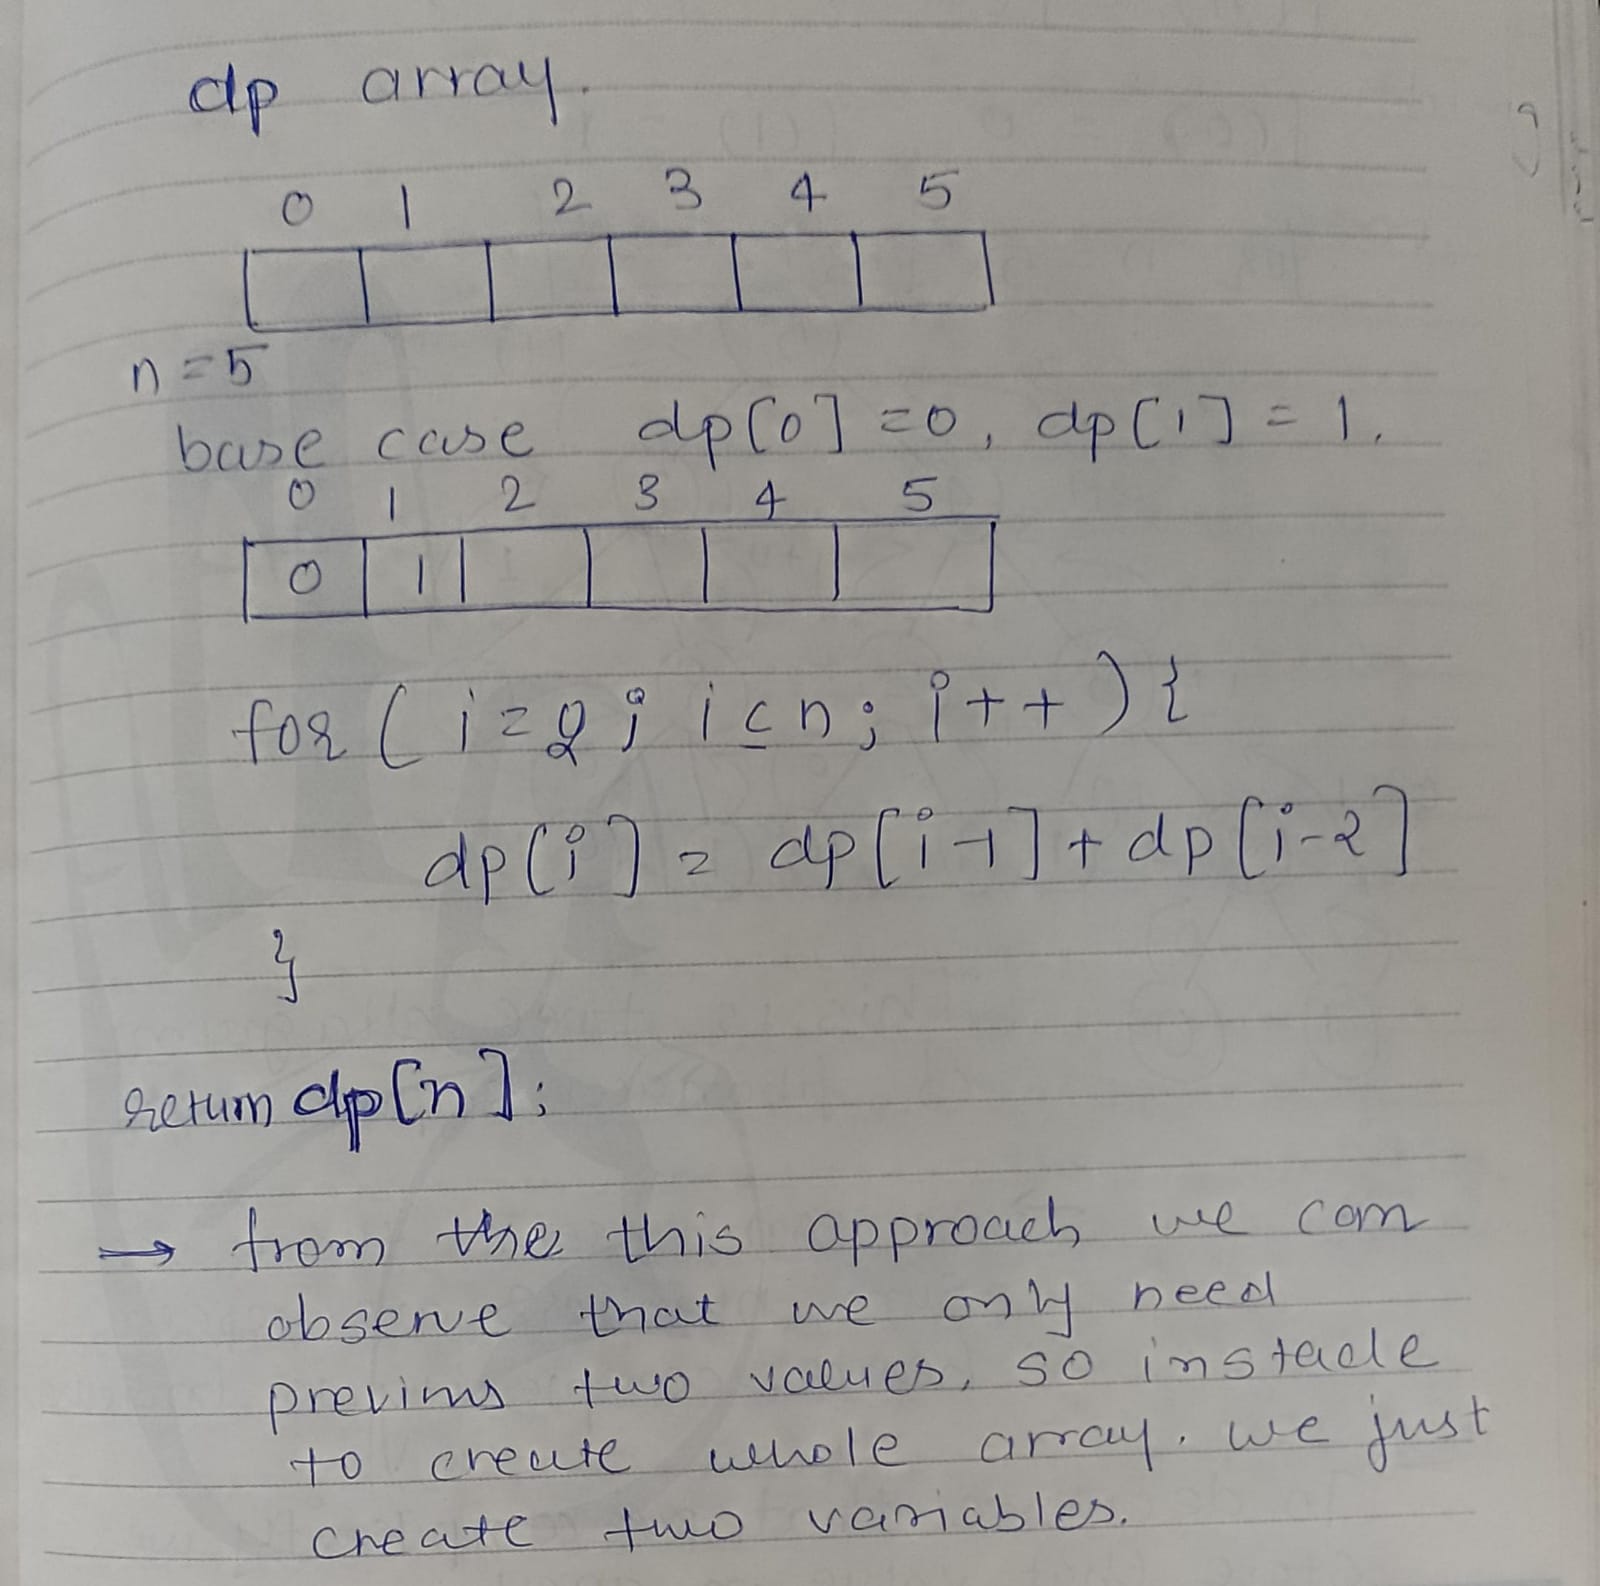 dp array.
0 1 2 3 4 5
n=5
base case dp[0]=0, dp[1]=1.
0 1 2 3 4 5
0 1
for(i=2; i≤n; i++){
dp[i]=dp[i-1]+dp[i-2]
}
return dp[n];
→ from the this approach we can
observe that we only need
previous two values, so instade
to create whole array. we just
create two variables.